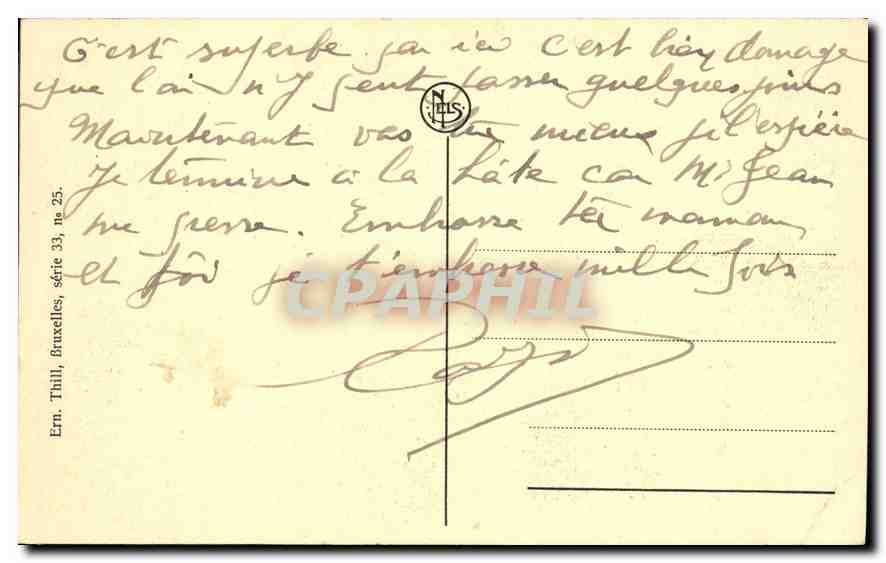 C'est superbe par ici c'est bien domage
que l'on n'y peut passer quelques jours
NELS
Maintenant vas tu mieux je l'espère
Je termine a la hâte car Mr Jean
me presse. Embrasse ta maman
et toi je t'embrasse mille fois
CPAPHIL
Ern. Thill, Bruxelles, série 33, no 25.